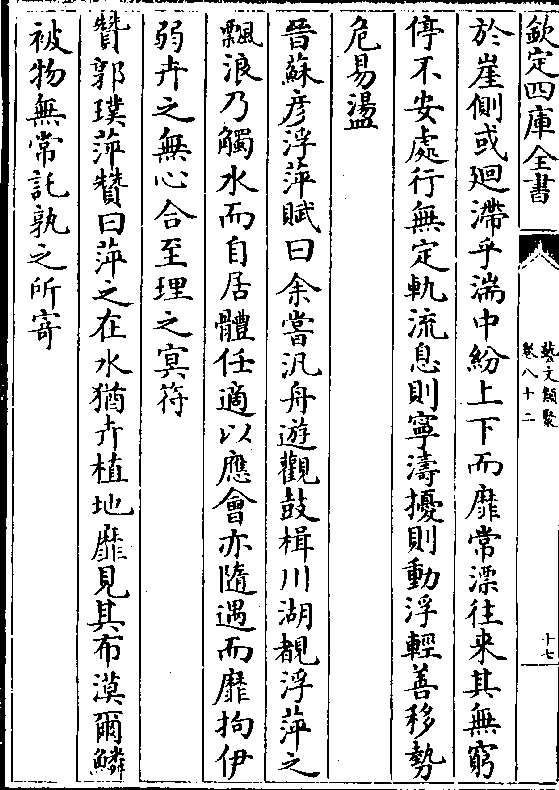 欽定四庫全書
藝文類聚
卷八十二
十七
於崖側或廻滯乎湍中紛上下而靡常漂往来其無窮
停不安處行無定軌流息則寧濤擾則動浮輕善移勢
危易盪
晉蘇彦浮萍賦曰余嘗汎舟遊觀鼓楫川湖覩浮萍之
飄浪乃觸水而自居體任適以應會亦隨遇而靡拘伊
弱卉之無心合至理之冥符
贊郭璞萍贊曰萍之在水猶卉植地靡見其布漠爾鱗
被物無常託孰之所寄